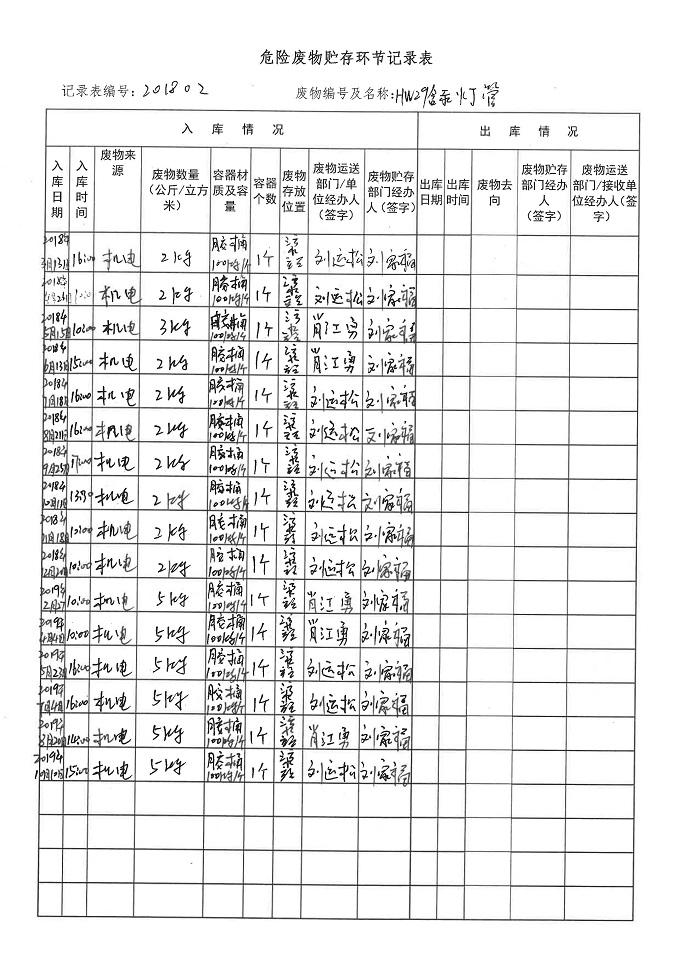 危险废物贮存环节记录表
记录表编号：201802 废物编号及名称：HW29含汞灯管
入 库 情 况 出 库 情 况
入库日期 入库时间 废物来源 废物数量（公斤/立方米） 容器材质及容量 容器个数 废物存放位置 废物运送部门/单位经办人（签字） 废物贮存部门经办人（签字） 出库日期 出库时间 废物去向 废物贮存部门经办人（签字） 废物运送部门/接收单位经办人（签字）
2018年 月13日 16:00 机电 2kg 胶桶 100kg/个 1个 刘运松 刘家福
2018年 机电 2kg 胶桶 100kg/个 1个 刘运松 刘家福
2018年5月15日 10:00 机电 3kg 胶桶 100kg/个 1个 肖江勇 刘家福
2018年6月13日 15:00 机电 2kg 胶桶 100kg/个 1个 肖江勇 刘家福
2018年7月18日 16:00 机电 2kg 胶桶 100kg/个 1个 刘运松 刘家福
2018年8月21日 16:00 机电 2kg 胶桶 100kg/个 1个 刘运松 刘家福
2018年9月25日 17:00 机电 2kg 胶桶 100kg/个 1个 刘运松 刘家福
2018年10月11日 1330 机电 2kg 胶桶 100kg/个 1个 刘运松 刘家福
2018年11月18日 10:00 机电 2kg 胶桶 100kg/个 1个 刘运松 刘家福
2018年12月20日 10:00 机电 2kg 胶桶 100kg/个 1个 刘运松 刘家福
2019年2月27 10:00 机电 5kg 胶桶 100kg/个 1个 肖江勇 刘家福
2019年4月4日 10:00 机电 5kg 胶桶 100kg/个 1个 肖江勇 刘家福
2019年5月23日 16:00 机电 5kg 胶桶 100kg/个 1个 刘运松 刘家福
2019年7月4日 16:00 机电 5kg 胶桶 100kg/个 1个 刘运松 刘家福
2019年8月20日 14:00 机电 5kg 胶桶 100kg/个 1个 肖江勇 刘家福
2019年10月10日 15:00 机电 5kg 胶桶 100kg/个 1个 刘运松 刘家福